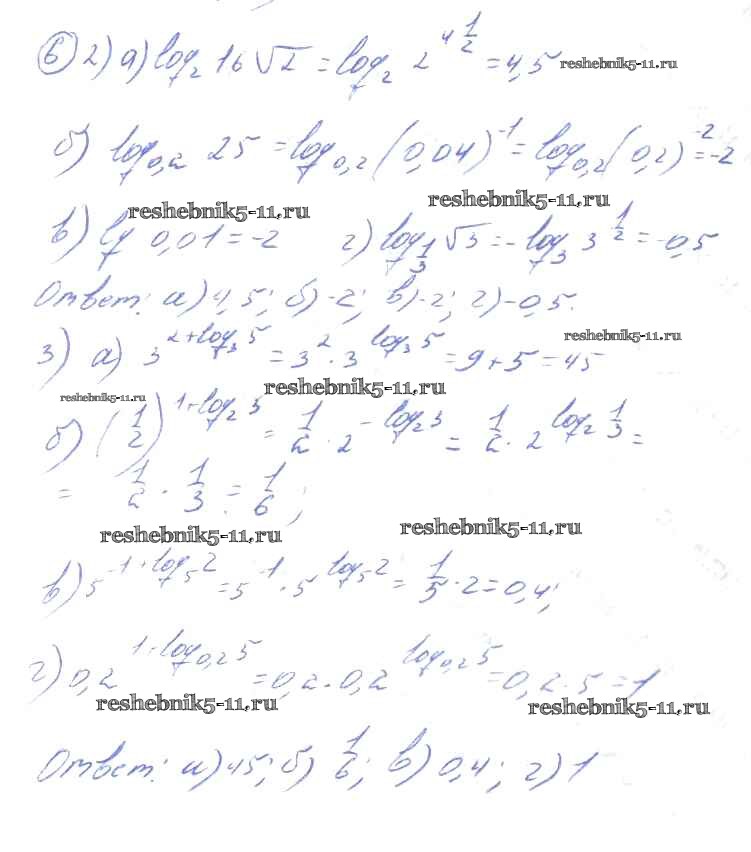 6) 2) а) log₂ 16√2 = log₂ 2^(4 1/2) = 4,5 reshebnik5-11.ru
б) log₀,₂ 25 = log₀,₂ (0,04)⁻¹ = log₀,₂ (0,2)⁻² = -2
reshebnik5-11.ru reshebnik5-11.ru
в) lg 0,01 = -2 г) log_(1/3) √3 = -log₃ 3^(1/2) = -0,5
Ответ: а) 4,5; б) -2; в) -2; г) -0,5.
reshebnik5-11.ru
3) а) 3^(2+log₃5) = 3² · 3^(log₃5) = 9 + 5 = 45
reshebnik5-11.ru reshebnik5-11.ru
б) (1/2)^(1+log₂3) = 1/2 · 2^(-log₂3) = 1/2 · 2^(log₂ 1/3) =
= 1/2 · 1/3 = 1/6;
reshebnik5-11.ru reshebnik5-11.ru
в) 5^(-1+log₅2) = 5⁻¹ · 5^(log₅2) = 1/5 · 2 = 0,4;
г) 0,2^(1+log₀,₂5) = 0,2 · 0,2^(log₀,₂5) = 0,2 · 5 = 1
reshebnik5-11.ru reshebnik5-11.ru
Ответ: а) 45; б) 1/6; в) 0,4; г) 1